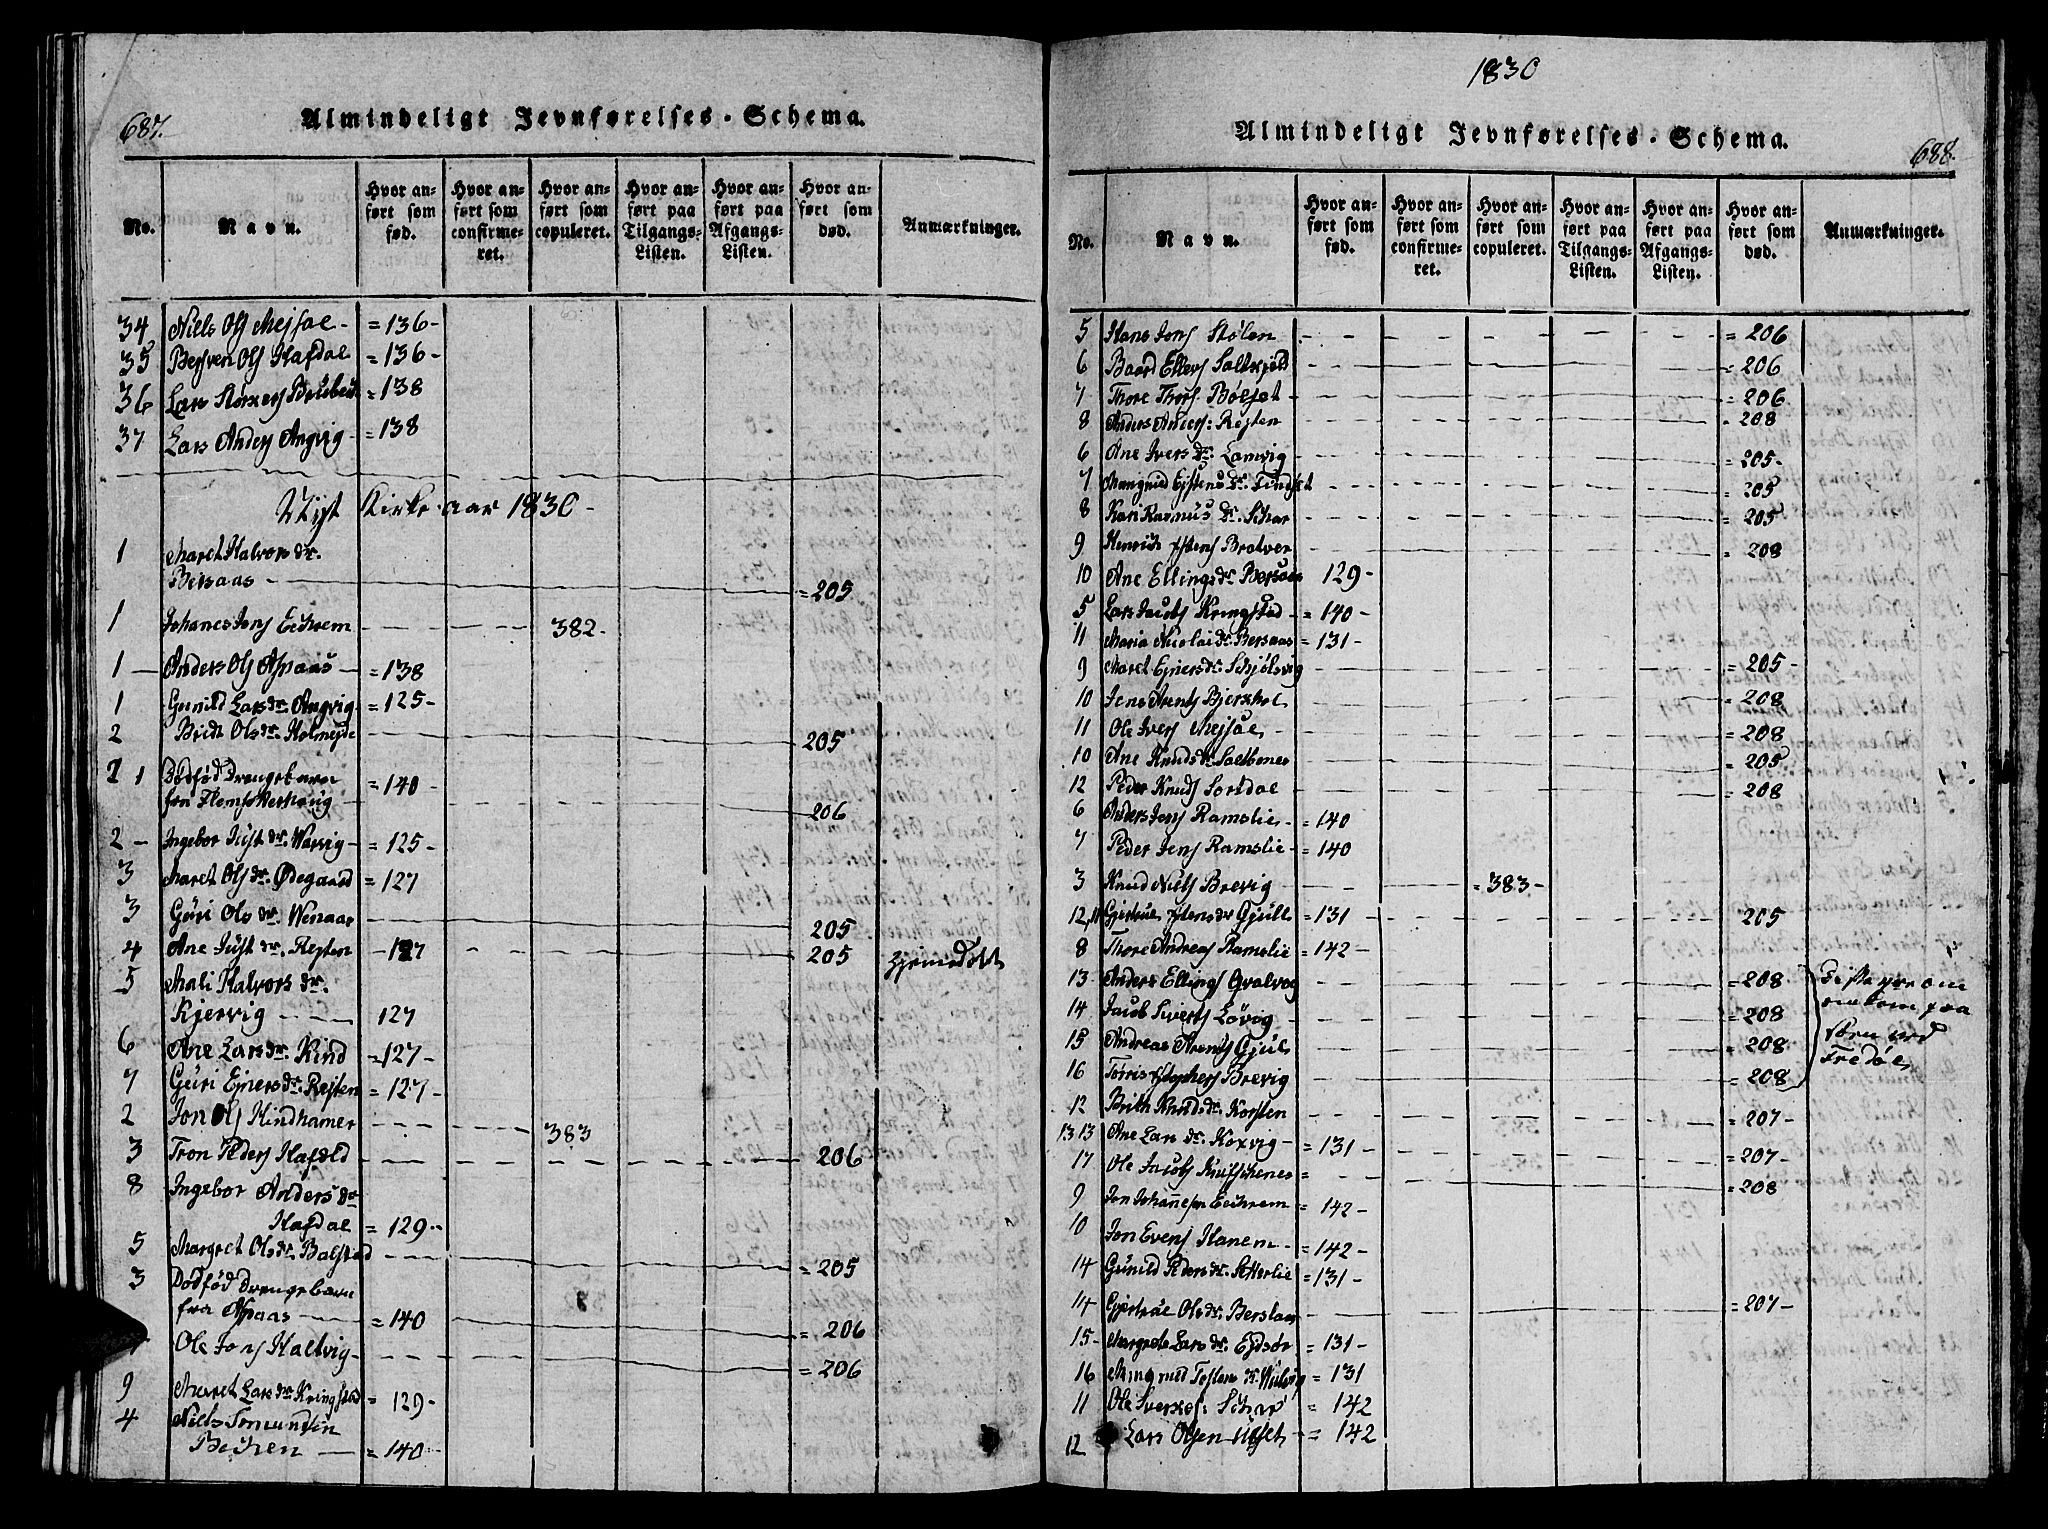 687.
Almindeligt Jevnførelses-Schema.
No.
Navn.
Hvor anført som fød.
Hvor anført som confirmeret.
Hvor anført som copuleret.
Hvor anført paa Tilgangs-Listen.
Hvor anført paa Afgangs-Listen.
Hvor anført som død.
Anmærkninger.
34 Niels Ols Mejsæl - = 136 -
35 Ols Hafdal = 136 -
36 Lars = 138
37 Lars Anders Angvig - = 138
Nyt Kirke-aar 1830 -
1 Maret Halvors dr.
Bersaas - = 205
1 Johanes Jons Echrem 382 -
1 - Anders Ols Aspaas = 138
1 Gunild Lars dr. Angvig = 125 -
2 Brith Ols dr. Holmejde 205
1 Dødfød Drengebarn = 140 -
fra 206
2 - Ingebor Just dr. Warvig - = 125 -
3 Maret Ols dr. Ødegaard = 127
3 Guri Ols dr. Wenaas 205
4 Ane Just dr. Rejten - 127 205 hjemedøbt
5 Mali Halvors dr.
Kjervig 127
6 Ane Lars dr. Kind = 127 -
7 Guri Ejners dr. Rejten = 127 -
2 Jon Ols Hindhamer 383
3 Tron Peders Hafold 206
8 Ingebor Anders dr.
Hafdal = 129 -
5 Margret Ols dr. Balstad = 205
3 Dødfød Drengebarn
fra Aspaas = 140 = 206
Ole Jons Haltvig - = 206
9 Maret Lars dr. Kringstad = 129 -
4 Niels Tomundsen
= 140 -
1830
Almindeligt Jevnførelses-Schema.
688.
No.
Navn.
Hvor anført som fød.
Hvor anført som confirmeret.
Hvor anført som copuleret.
Hvor anført paa Tilgangs-Listen.
Hvor anført paa Afgangs-Listen.
Hvor anført som død.
Anmærkninger.
5 Hans Jons Stølen = 206
6 Baard Ellers Saltkjeld = 206
7 Thore Thors Bølset = 206
8 Anders Anders: Rejten = 208
6 Ane Ivers dr. Lamvig = 205 -
7 Mangnild dr. = 205
8 Kari Rasmus dr. Schar = 205
9 Henrich Brotver = 208
10 Ane Ellings dr. Bersaas 129 -
5 Lars Jacobs Kringstad = 140 -
11 Maria Nicolai dr. Bersaas = 131 -
9 Maret Ejners dr. Schjølsvig = 205 -
10 Jens Arents = 208
11 Ole Ivers Mejsæl = 208
10 Ane Knuds dr. Saltbones = 205
12 Peder Knuds = 208
6 Anders Jens Ramslie - = 140
7 Peder Jens Ramslie - = 140
3 Knud Niels Brevig = 383 -
12,11 Gjertrue dr. Gjull = 131 205
8 Thore Andreas Ramslie = 142 -
13 Anders Ellings Qvalvog = 208
14 Jacob Siverts Løvig = 208
15 Andreas Arents Gjul = 208
16 Torris Brevig = 208
omkom fra
Fredøe
12 Brith Knuds dr. Korsten = 207 -
13 13 Ane Lars dr. Koxvig - = 131 - = 207 -
17 Ole Jacobs = 208
9 Jon Johannesen Eechrem = 142 -
10 Jon Evens Hanem = 142 -
14 Gunild Peders dr. Setterlie = 131 -
14 Gjertrue Ols dr. = 207 -
15 - Margrete Lars dr. Ejdsør = 131 -
16 dr. = 131
11 Ole = 142
12 Lars Olsen = 142